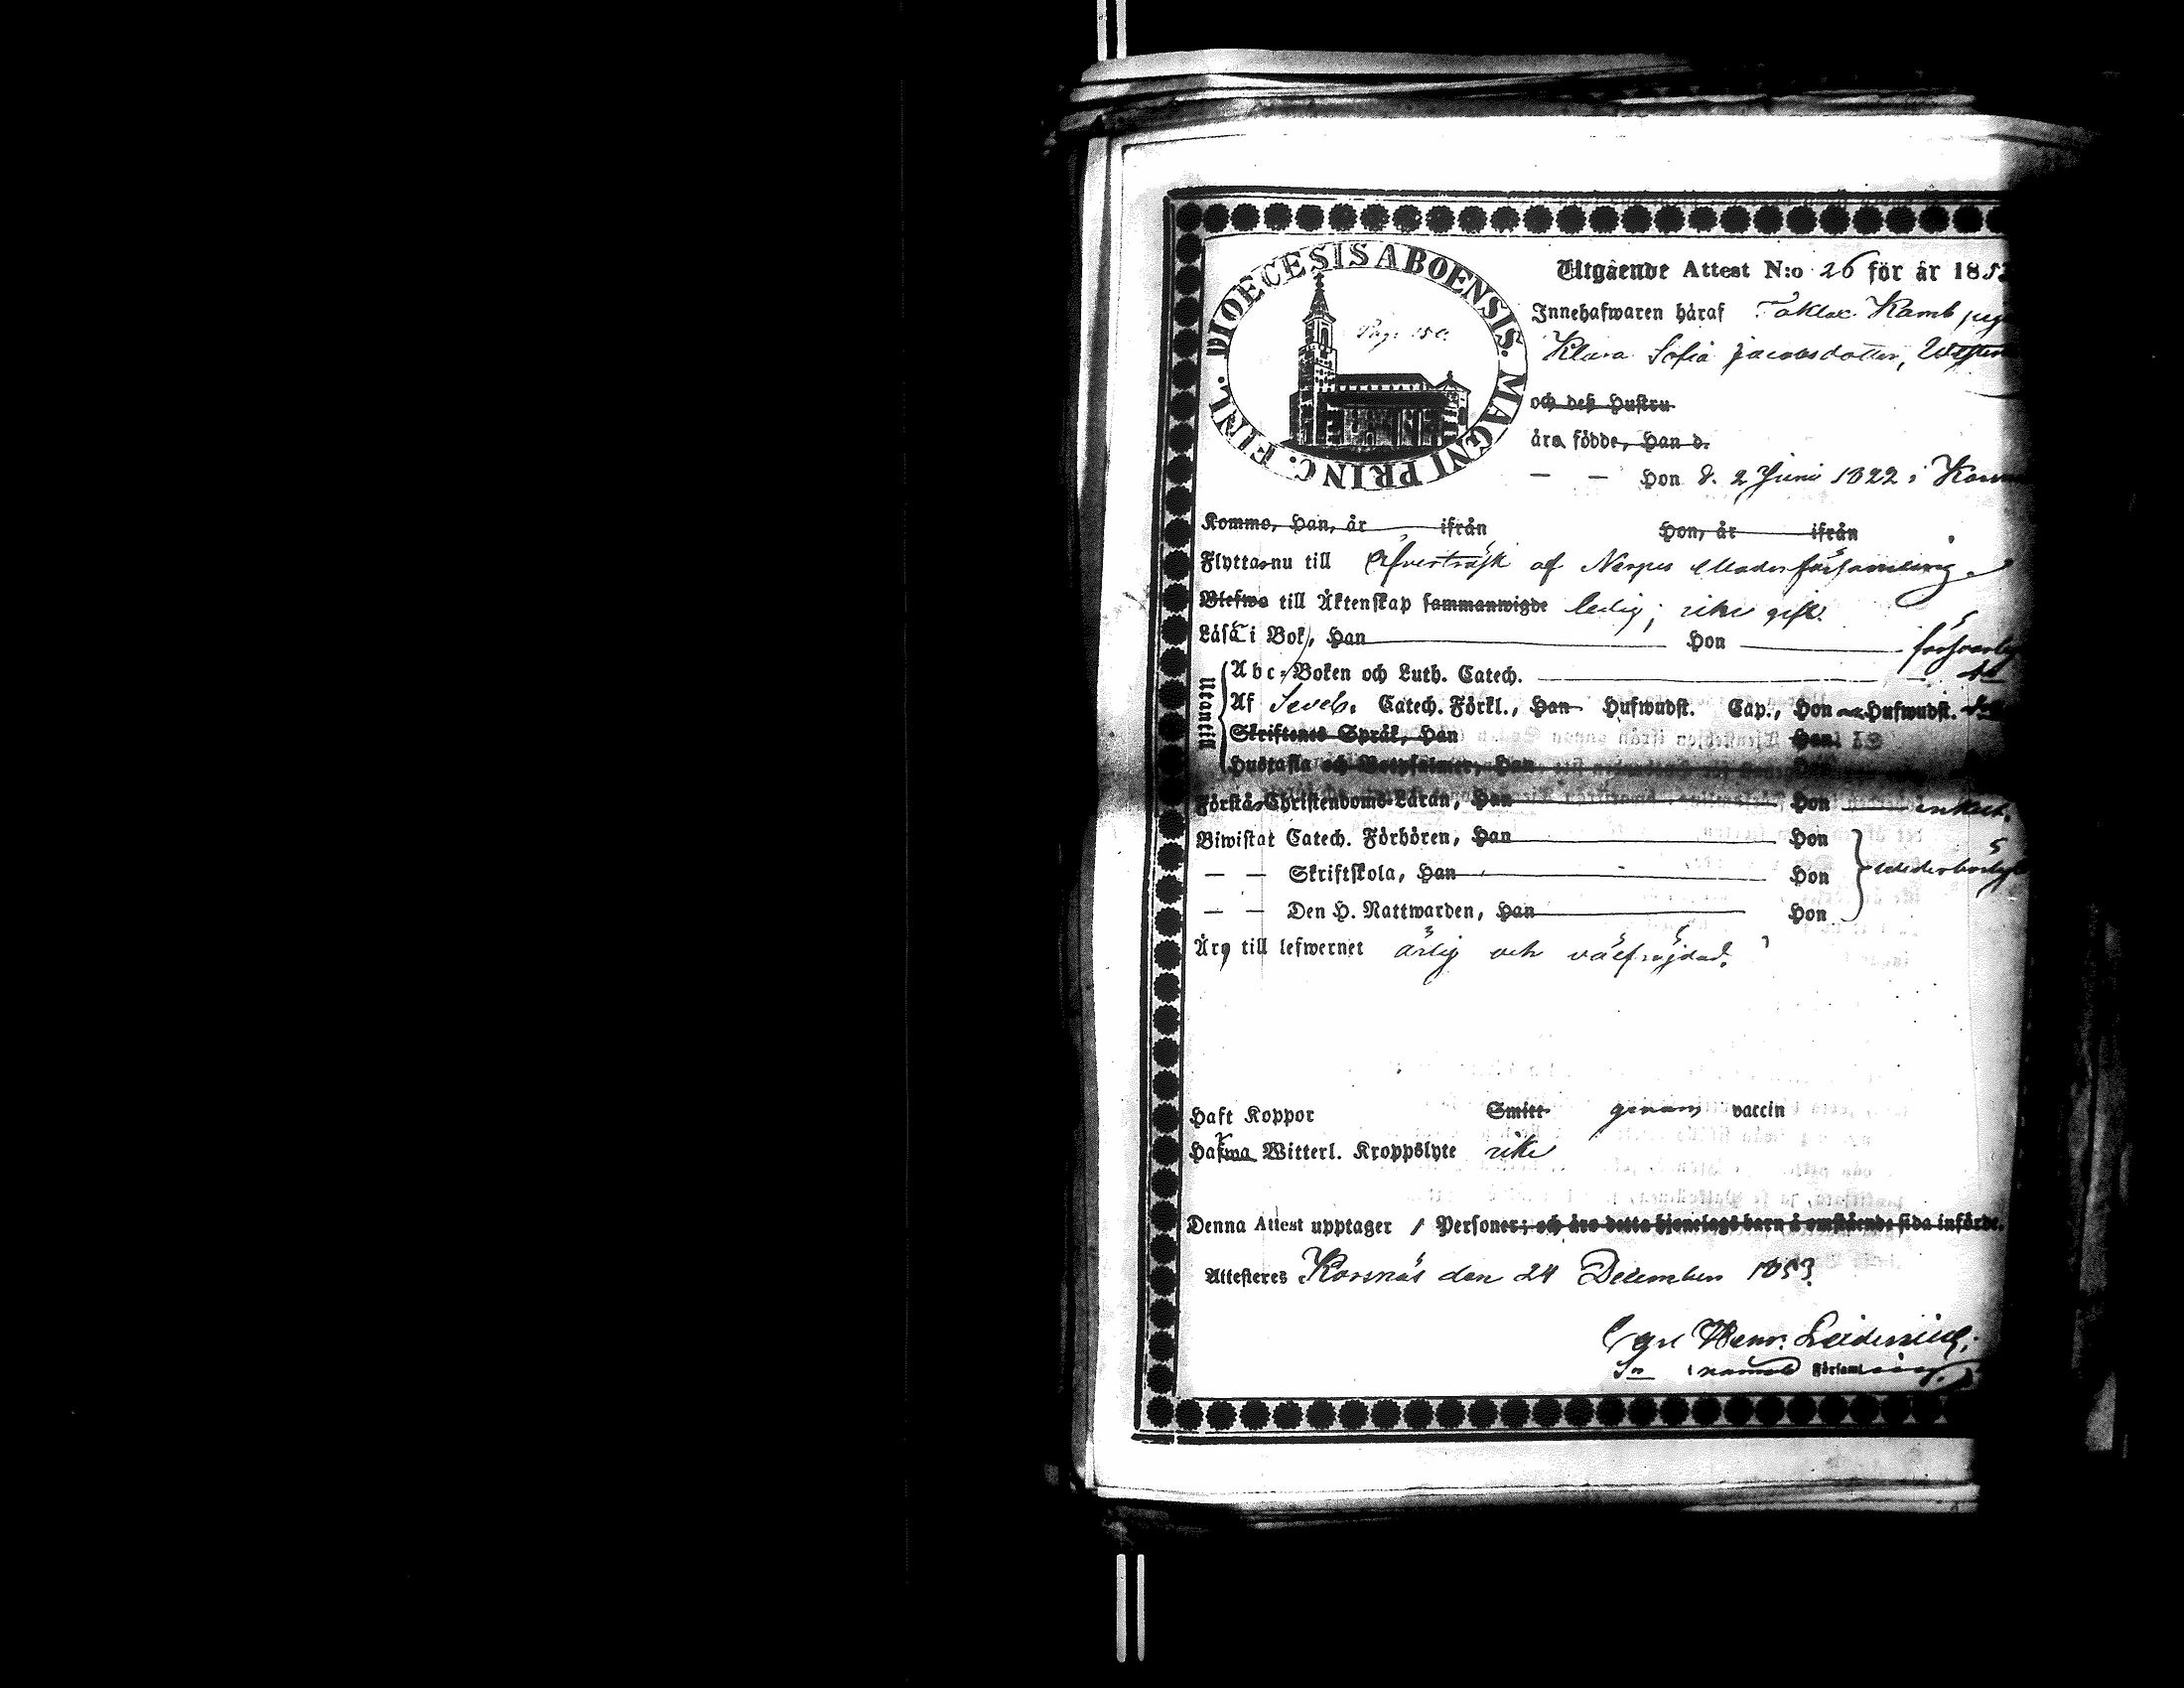 DIOECESIS ABOENSIS. MAGNI PRINC. FINL.
Pag. 150.
Utgående Attest N:o 26 för år 1853
Innehafwaren häraf Taklax Kamb pig
Klara Sofia Jacobsdotter,
och deß Hustru
äro födde, Han d.
— — Hon d. 2 Junii 1822 i Kors
Komme, Han, år ifrån Hon, år ifrån
Flytta nu till Öfverträsk af Nerpes Moderförsamling.
Blefwo till Äktenskap sammanwigde ledig; icke gift.
Läsa i Bok, Han Hon försvarlig
Utantill
Abc-Boken och Luth. Catech. do
Af Sveb. Catech. Förkl., Han Hufwudst. Cap., Hon Hufwudst.
Skriftenes Språk, Han Hon
Hustafla och Botpsalmer, Han Hon
Förstå Christendoms-Läran, Han Hon enkelt.
Biwistat Catech. Förhören, Han Hon
— — Skriftskola, Han Hon wederbörligt
— — Den H. Nattwarden, Han Hon
Äro till lefwernet ärlig och välfräjdad.
Haft Koppor Smitt genom vaccin
Hafwa Witterl. Kroppslyte icke
Denna Attest upptager 1 Personer; och äro detta hjonelags barn å omstående sida införde.
Attesteres Korsnäs den 24 December 1853.
Carl Henr.
Församl